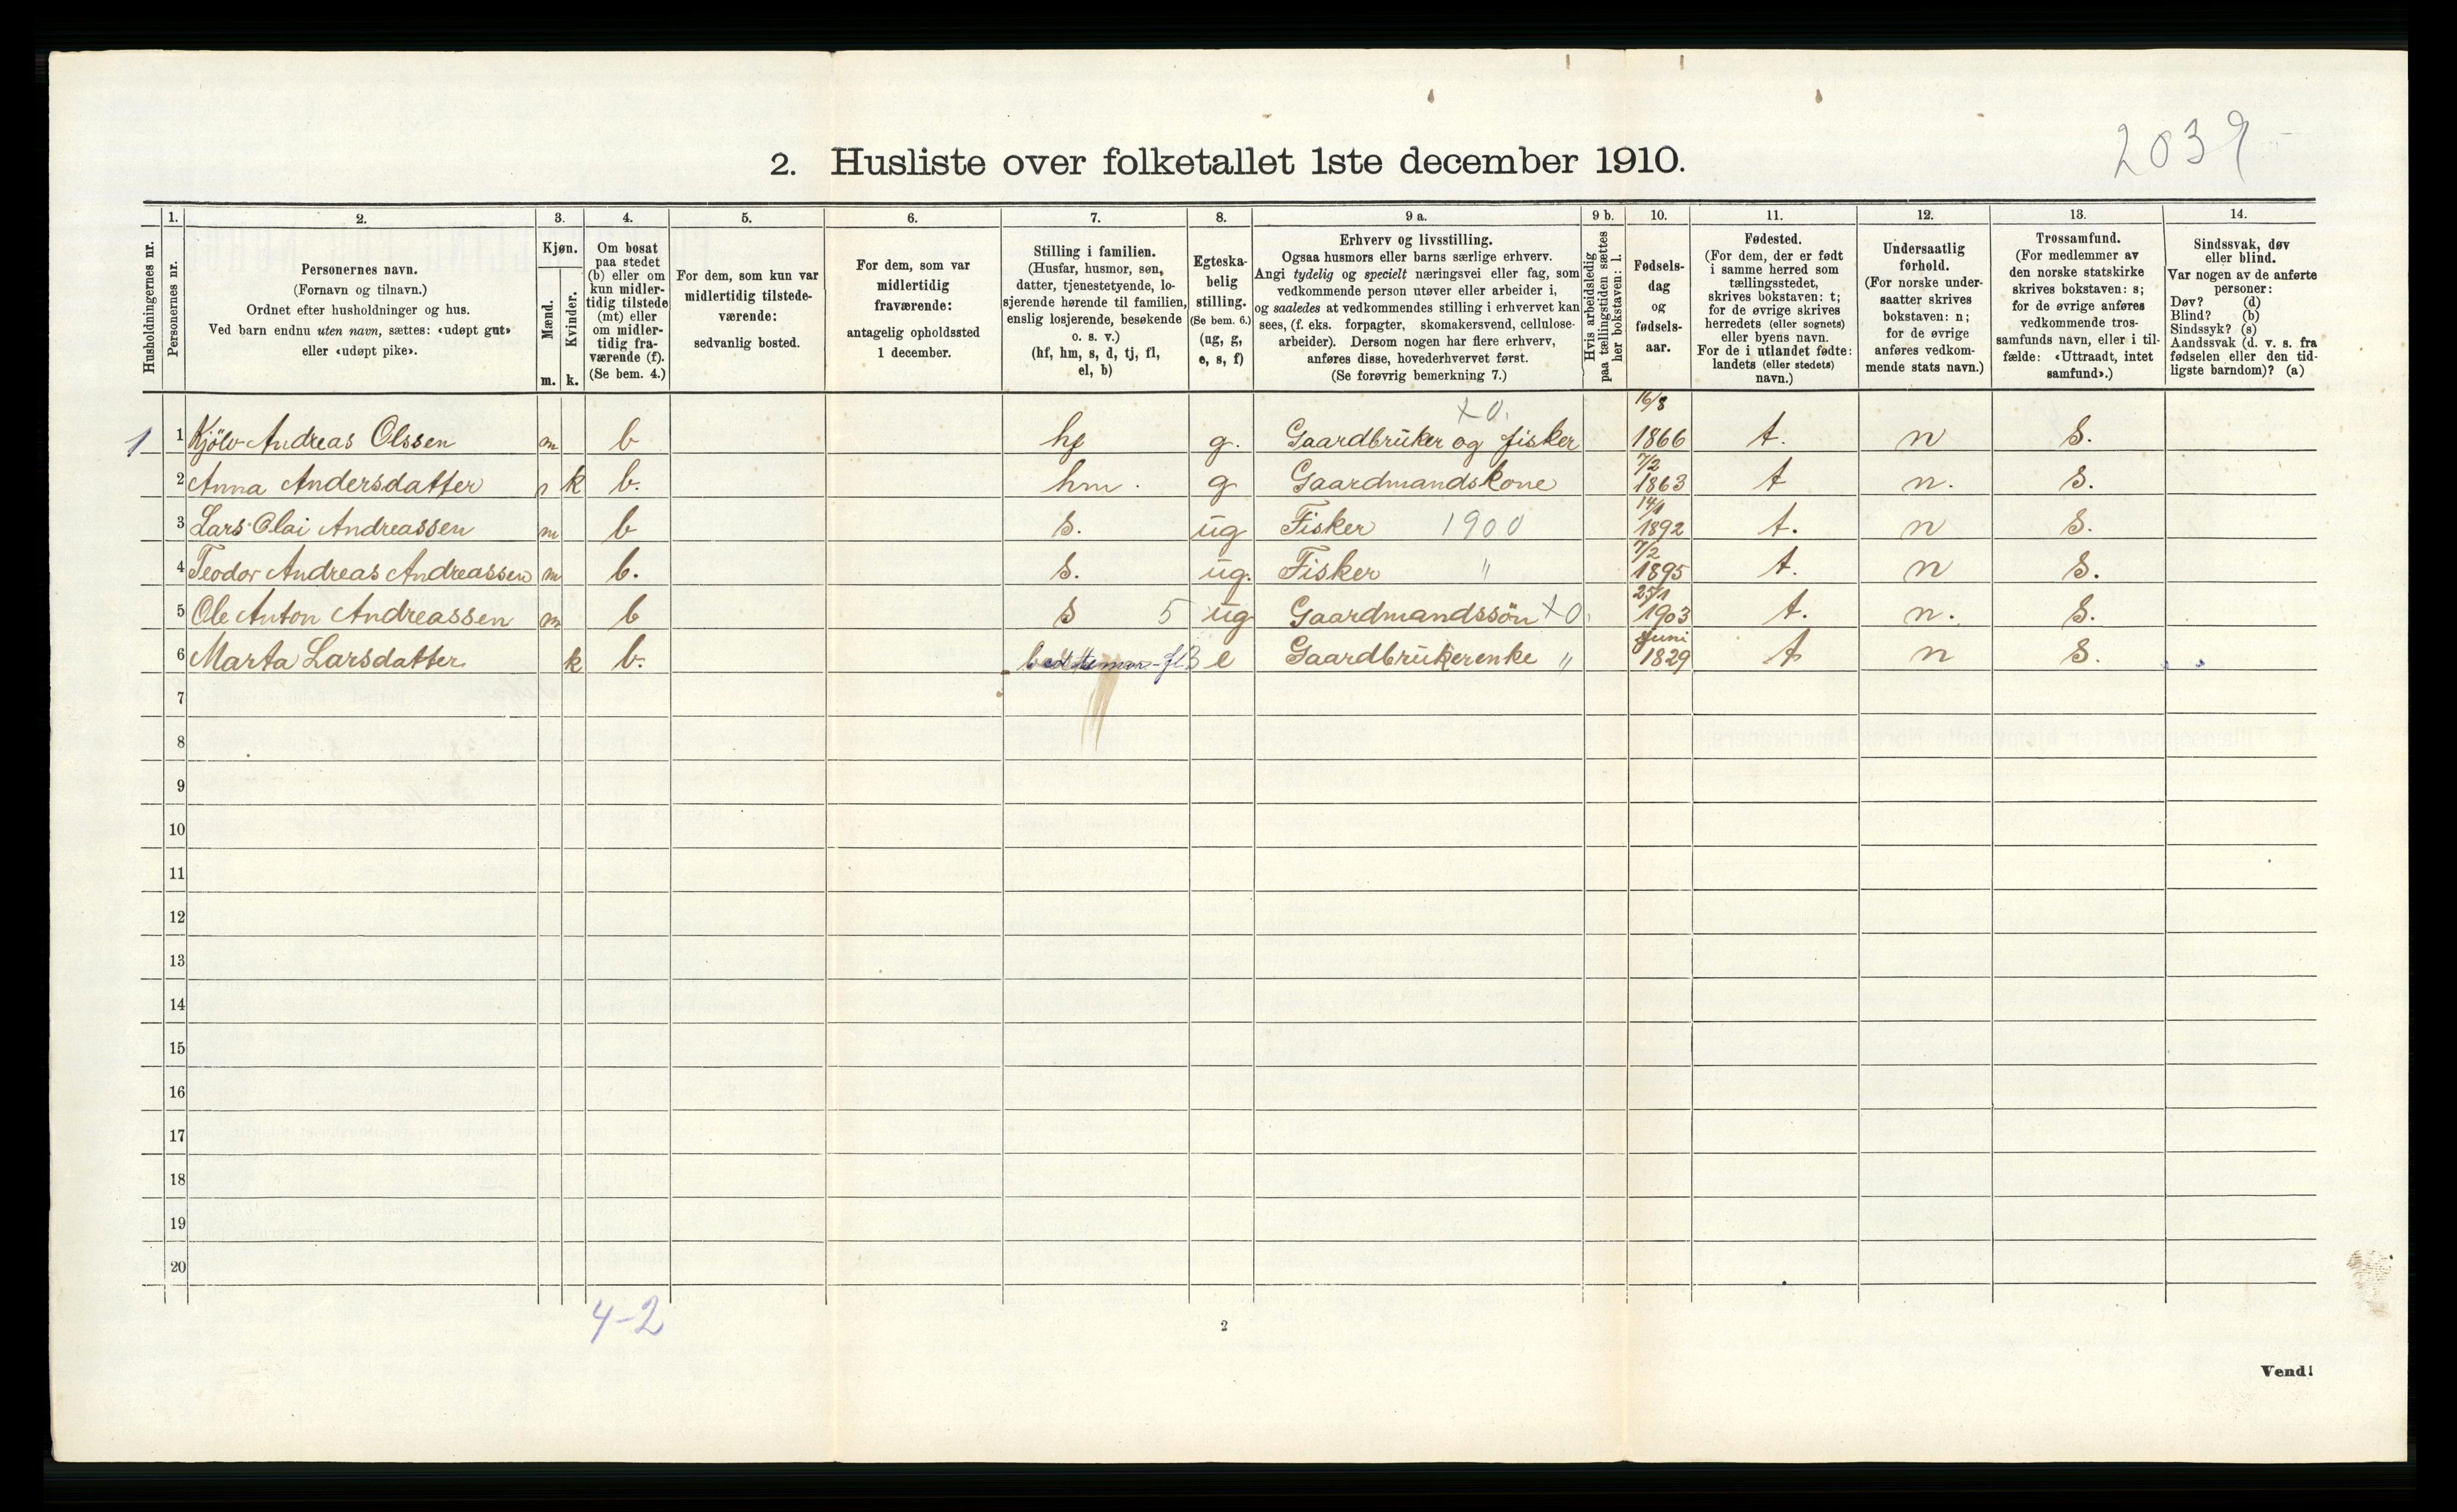 2039
2. Husliste over folketallet 1ste december 1910.
Husholdningernes nr.
1.
Personernes nr.
2.
Personernes navn.
(Fornavn og tilnavn.)
Ordnet efter husholdninger og hus.
Ved barn endnu uten navn, sættes: «udøpt gut»
eller «udøpt pike».
3.
Kjøn.
Mænd.
Kvinder.
m. k.
4.
Om bosat
paa stedet
(b) eller om
kun midler-
tidig tilstede
(mt) eller
om midler-
tidig fra-
værende (f).
(Se bem. 4.)
5.
For dem, som kun var
midlertidig tilstede-
værende:
sedvanlig bosted.
6.
For dem, som var
midlertidig
fraværende:
antagelig opholdssted
1 december.
7.
Stilling i familien.
(Husfar, husmor, søn,
datter, tjenestetyende, lo-
sjerende hørende til familien,
enslig losjerende, besøkende
o. s. v.)
(hf, hm, s, d, tj, fl,
el, b)
8.
Egteska-
belig
stilling.
(Se bem. 6.)
(ug, g,
e, s, f)
9 a.
Erhverv og livsstilling.
Ogsaa husmors eller barns særlige erhverv.
Angi tydelig og specielt næringsvei eller fag, som
vedkommende person utøver eller arbeider i,
og saaledes at vedkommendes stilling i erhvervet kan
sees, (f. eks. forpagter, skomakersvend, cellulose-
arbeider). Dersom nogen har flere erhverv,
anføres disse, hovederhvervet først.
(Se forøvrig bemerkning 7.)
9 b.
Hvis arbeidsledig
paa tællingstiden sættes
her bokstaven: l.
10.
Fødsels-
dag
og
fødsels-
aar.
11.
Fødested.
(For dem, der er født
i samme herred som
tællingsstedet,
skrives bokstaven: t;
for de øvrige skrives
herredets (eller sognets)
eller byens navn.
For de i utlandet fødte:
landets (eller stedets)
navn.)
12.
Undersaatlig
forhold.
(For norske under-
saatter skrives
bokstaven: n;
for de øvrige
anføres vedkom-
mende stats navn.)
13.
Trossamfund.
(For medlemmer av
den norske statskirke
skrives bokstaven: s;
for de øvrige anføres
vedkommende tros-
samfunds navn, eller i til-
fælde: «Uttraadt, intet
samfund».)
14.
Sindssvak, døv
eller blind.
Var nogen av de anførte
personer:
Døv? (d)
Blind? (b)
Sindssyk? (s)
Aandssvak (d. v. s. fra
fødselen eller den tid-
ligste barndom)? (a)
x 0. 16/8
1 1 Kjölv Andreas Olssen m b hf g. Gaardbruker og fisker 1866 t. n s.
7/2
2 Anna Andersdatter k b. hm. g Gaardmandskone 1863 t n. s.
14/1
3 Lars Olai Andreassen m b s. ug Fisker 1900 1892 t. n s.
7/2
4 Teodor Andreas Andreassen m b. s. ug. Fisker " 1895 t. n s.
25/1
5 Ole Anton Andreassen m b s 5 ug Gaardmandssön x 0. 1903 t. n. s.
Juni
6 Marta Larsdatter k b. fl 3 e Gaardbrukerenke " 1829 t n s.
7
8
9
10
11
12
13
14
15
16
17
18
19
20
4-2
2
Vend!